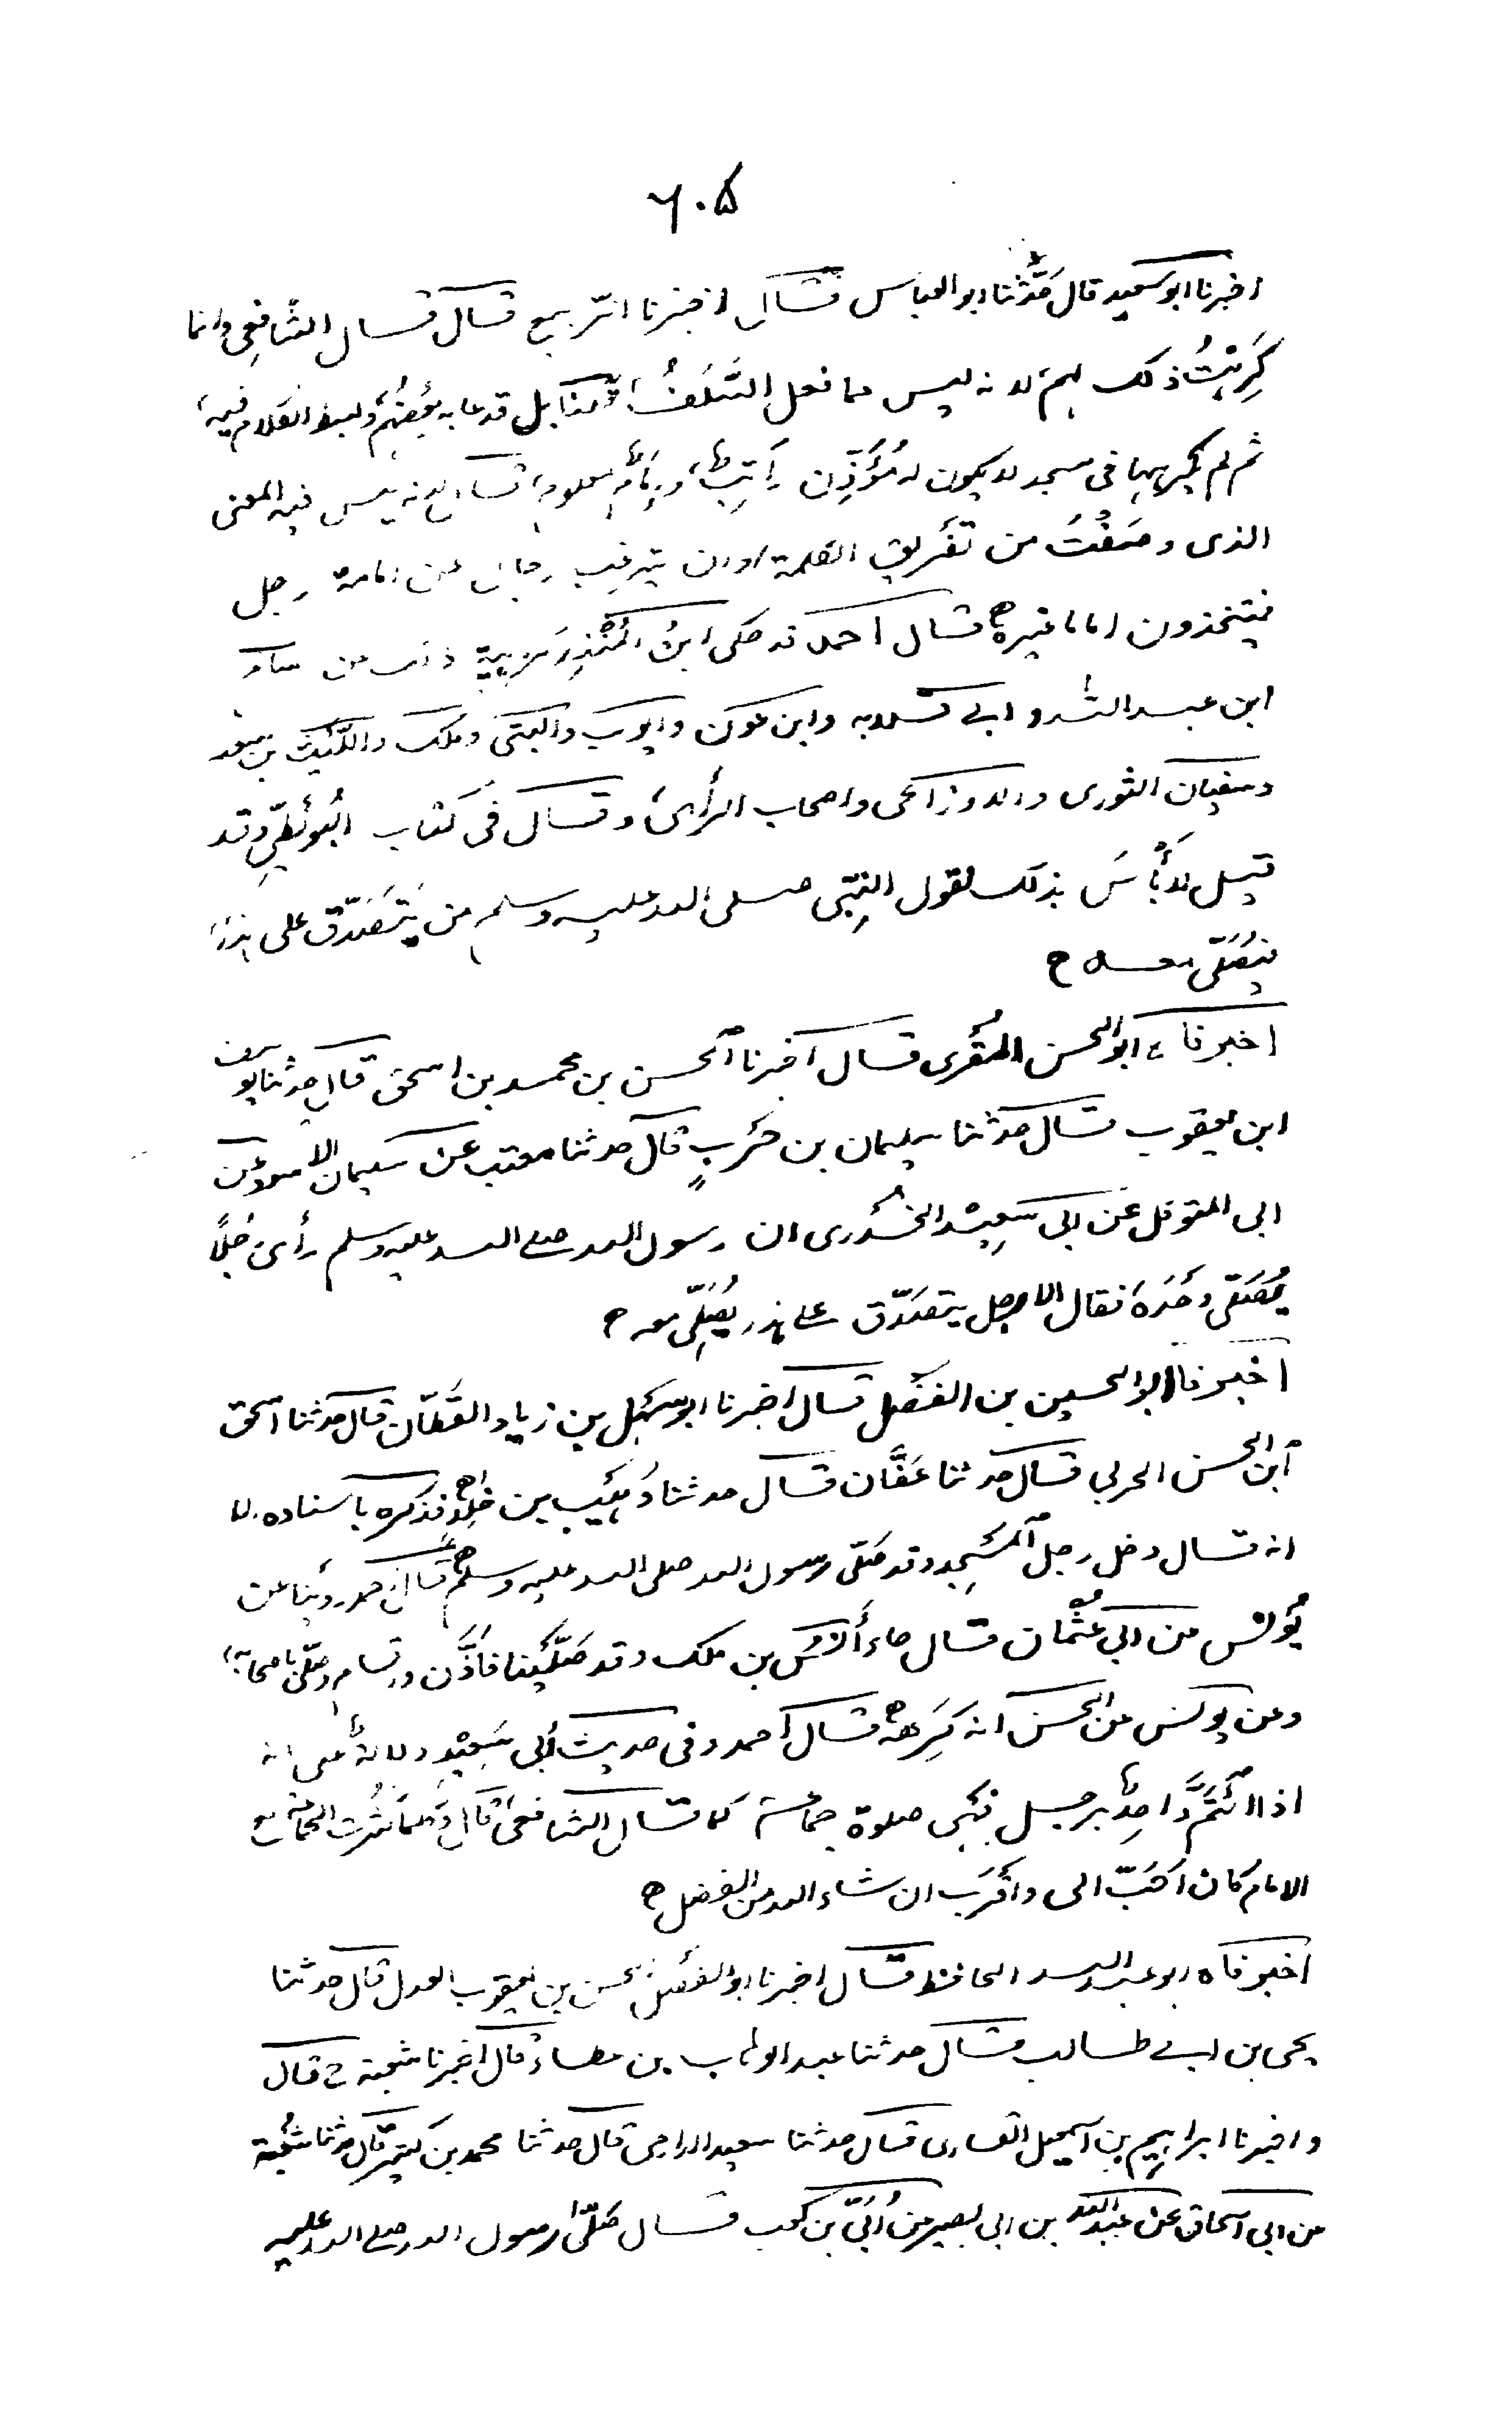 ۶۰۵
اخبرنا ابو سعيد قال حدّثنا ابو العباس قال اخبرنا الرّبيع قال قال الشّافعِى وانما
كَرِهْتُ ذلك لهم لانه ليس مما فعل السَّلَفُ قبلنا بل قد عابه بعضُهُم وبسط الكلام فيه
ثم لم يكرهها فى مسجد لا يكون له مُؤَذِّن رَاتِبٌ وإمامٌ معلوم قال لانه ليس فيه المعنى
الذى وصَفْتُ من تفريق الكلمة وان يرغب رجال عن امامة رجل
فيتخذون اماما غيره ح قال احمد قد حكى ابنُ المُنْذِر كراهية ذلك عن سالم
ابن عبد الله و ابى قلابه وابن عون وايوب والبتى وملك والليث بن سعد
وسفيان الثورى والاوزاعى واصحاب الرأى وقال فى كتاب البُوَيْطِىِّ وقد
قيل لا بَأسَ بذلك لقول النبِّى صلى الله عليه وسلم من يَتَصَدَّق على هذا
فيُصَلّى معه ح
اخبرناه ابو الحسن المُقرى قال اخبرنا الحسن بن محمد بن اسحق قال حدثنا يوسف
ابن يعقوب قال حدثنا سليمان بن حَربٍ قال حدثنا وهيب عن سليمان الاسود عن
ابى المتوكل عن ابى سَعِيدٍ الخُدرى ان رسول الله صلى الله عليه وسلم رأى رجلًا
يُصَلّى وَحْدَهُ فقال الا رجل يتصَدّق على هذا يُصَلّى معه ح
اخبرنا ابو الحسين بن الفَضل قال اخبرنا ابو سَهل بن زياد القَطّان قال حدثنا اسحق
ابن الحسن الحربى قال حدثنا عَفَّان قال حدثنا وُهَيب بن خالد فذكره باسناده الا
انه قال دخل رجل المسجِد وقد صَلّى رسول الله صلى الله عليه وسلم ح قال احمد روينا عن
يُونس عن ابى عُثمان قال جاء أنس بن ملك وقد صَلَّينا فأذَّن وقام وصلّى باصحابه
وعن يونس عن الحسن انه كَرِهه ح قال احمد وفى حديث أبى سَعِيدٍ دلالةٌ على انه
اذا ائتَمَّ واحِدٌ برجل فهى صلوة جماعة كما قال الشافعى قال وكلما كثرت الجماعة مع
الامام كان أحَبّ الى واقرَب ان شاء الله من الفضل ح
اخبرناه ابو عبد الله الحافظ قال اخبرنا ابو الفضل الحسن بن يعقوب العدل قال حدثنا
يحى بن ابى طالب قال حدثنا عبد الوهاب بن عطاء قال اخبرنا شعبة ح قال
واخبرنا ابراهيم بن اسمعيل القارى قال حدثنا سعيد الدارمى قال حدثنا محمد بن كثير قال حدثنا شُعبة
عن ابى اسحاق عن عبد الله بن ابى بصير عن أُبَىّ بن كعب قال صَلّى رسول الله صلى الله عليه